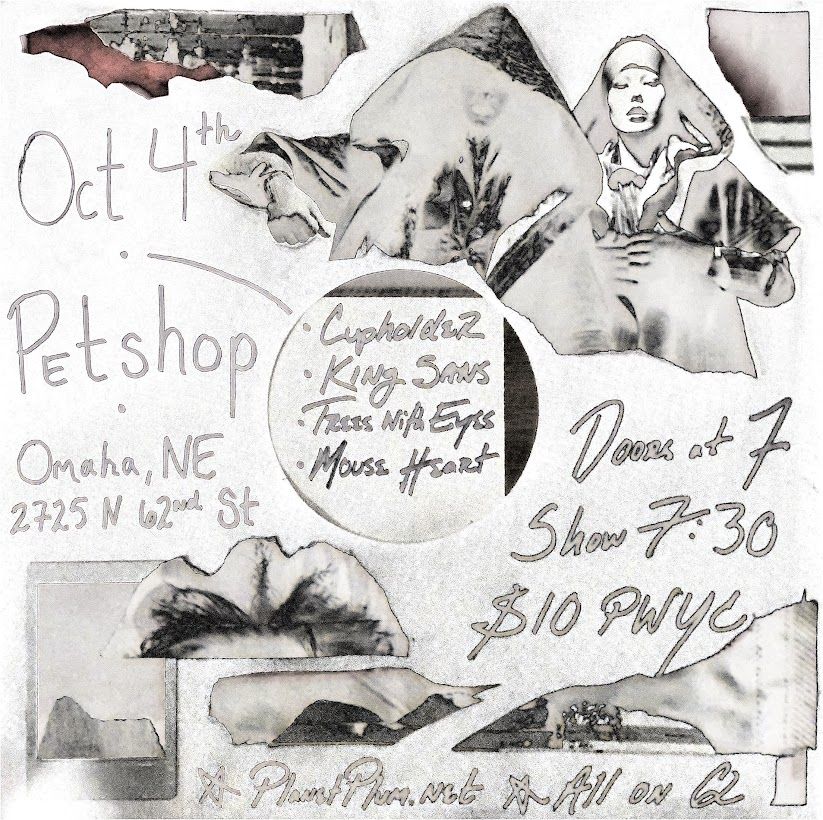 Oct 4th
Petshop
Omaha, NE
2725 N 62nd St
· Cupholder
· King Saws
· Trees With Eyes
· Mouse Heart
Doors at 7
Show 7:30
$10 PWYC
☆ PlanetPlum.net ☆ All on 62